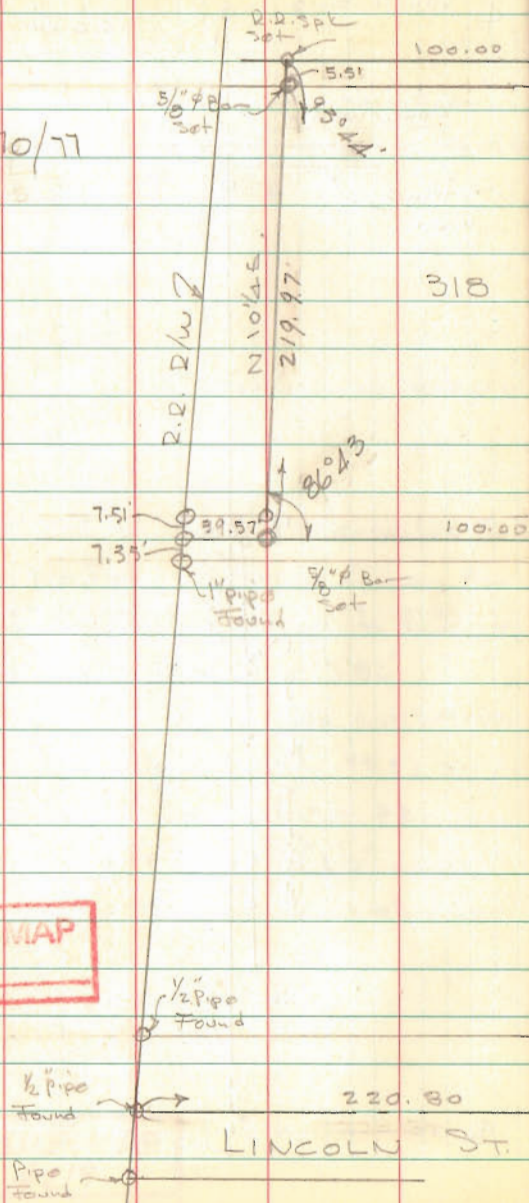 R.R. Spk
Set
100.00
5.51
5/8" φ Bar
Set
93° 44'
10/77
318
R.R. R/W
219.97'
86° 43
7.51'
39.57
100.00
7.35'
1" pipe
Found
5/8" φ Bar
Set
MAP
1/2" Pipe
Found
1/2" Pipe
Found
220.80
LINCOLN ST.
Pipe
Found